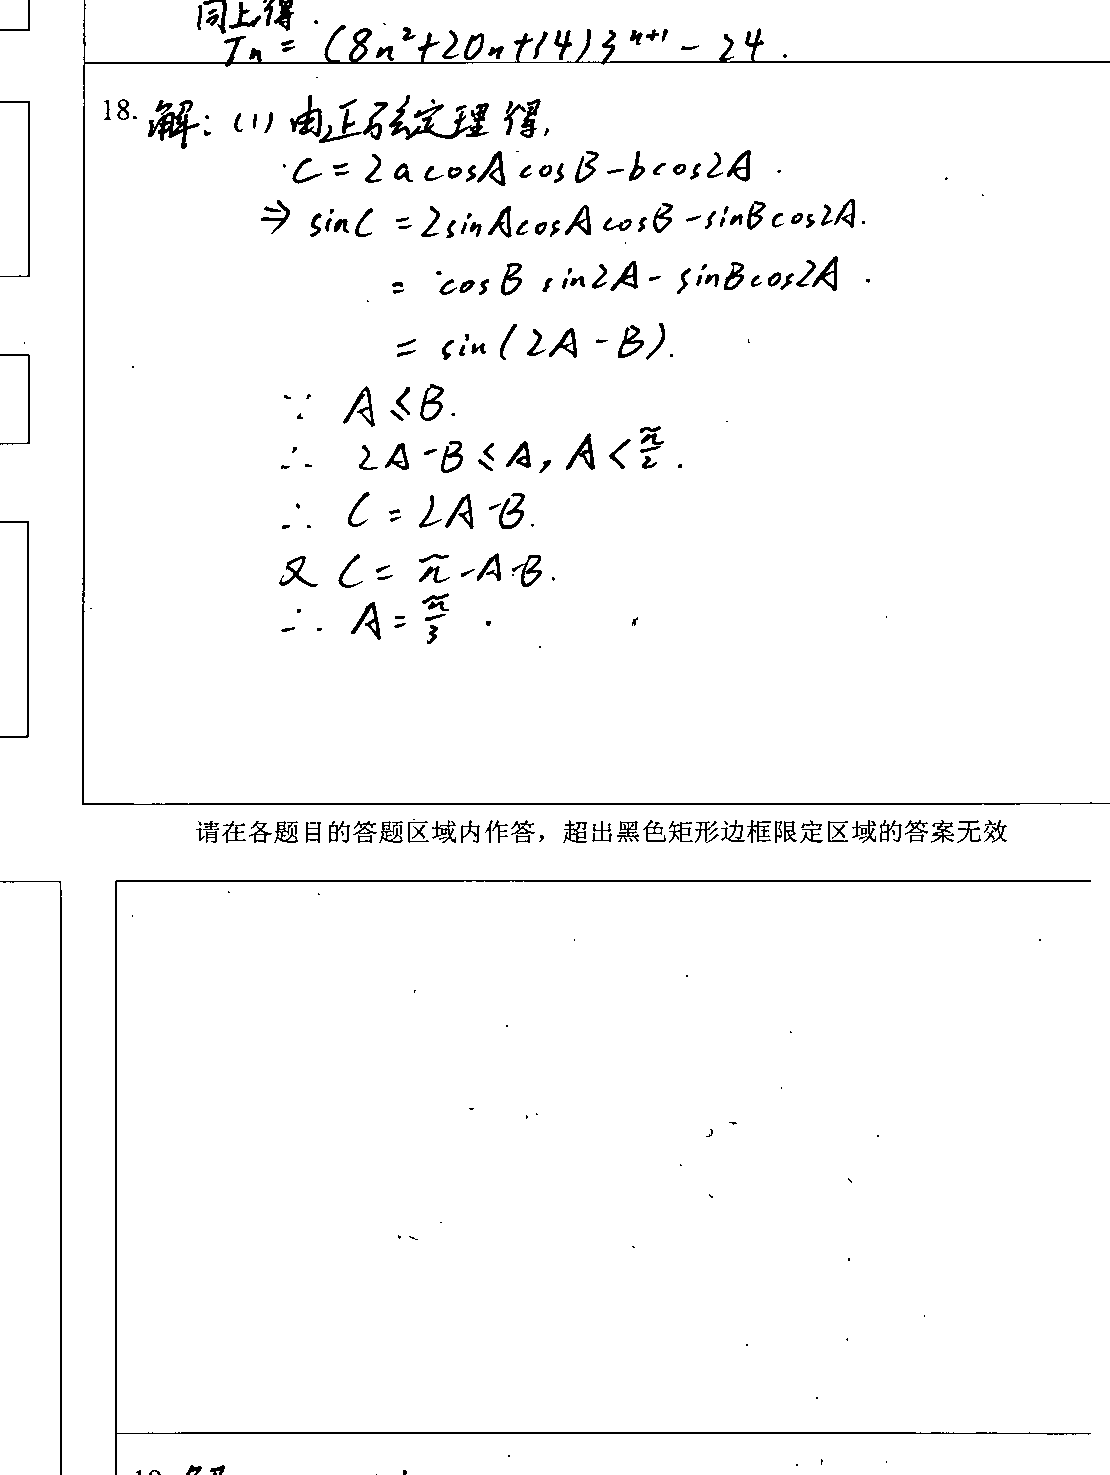 同上得.
Tn = (8n²+20n+14)3ⁿ⁺¹ - 24.
18. 解: (1) 由正弦定理得,
C = 2acosAcosB - bcos2A.
⇒ sinC = 2sinAcosAcosB - sinBcos2A.
= cosB sin2A - sinBcos2A.
= sin(2A - B).
∵ A ≤ B.
∴ 2A - B ≤ A, A < π/2.
∴ C = 2A - B.
又 C = π - A - B.
∴ A = π/3.
请在各题目的答题区域内作答，超出黑色矩形边框限定区域的答案无效